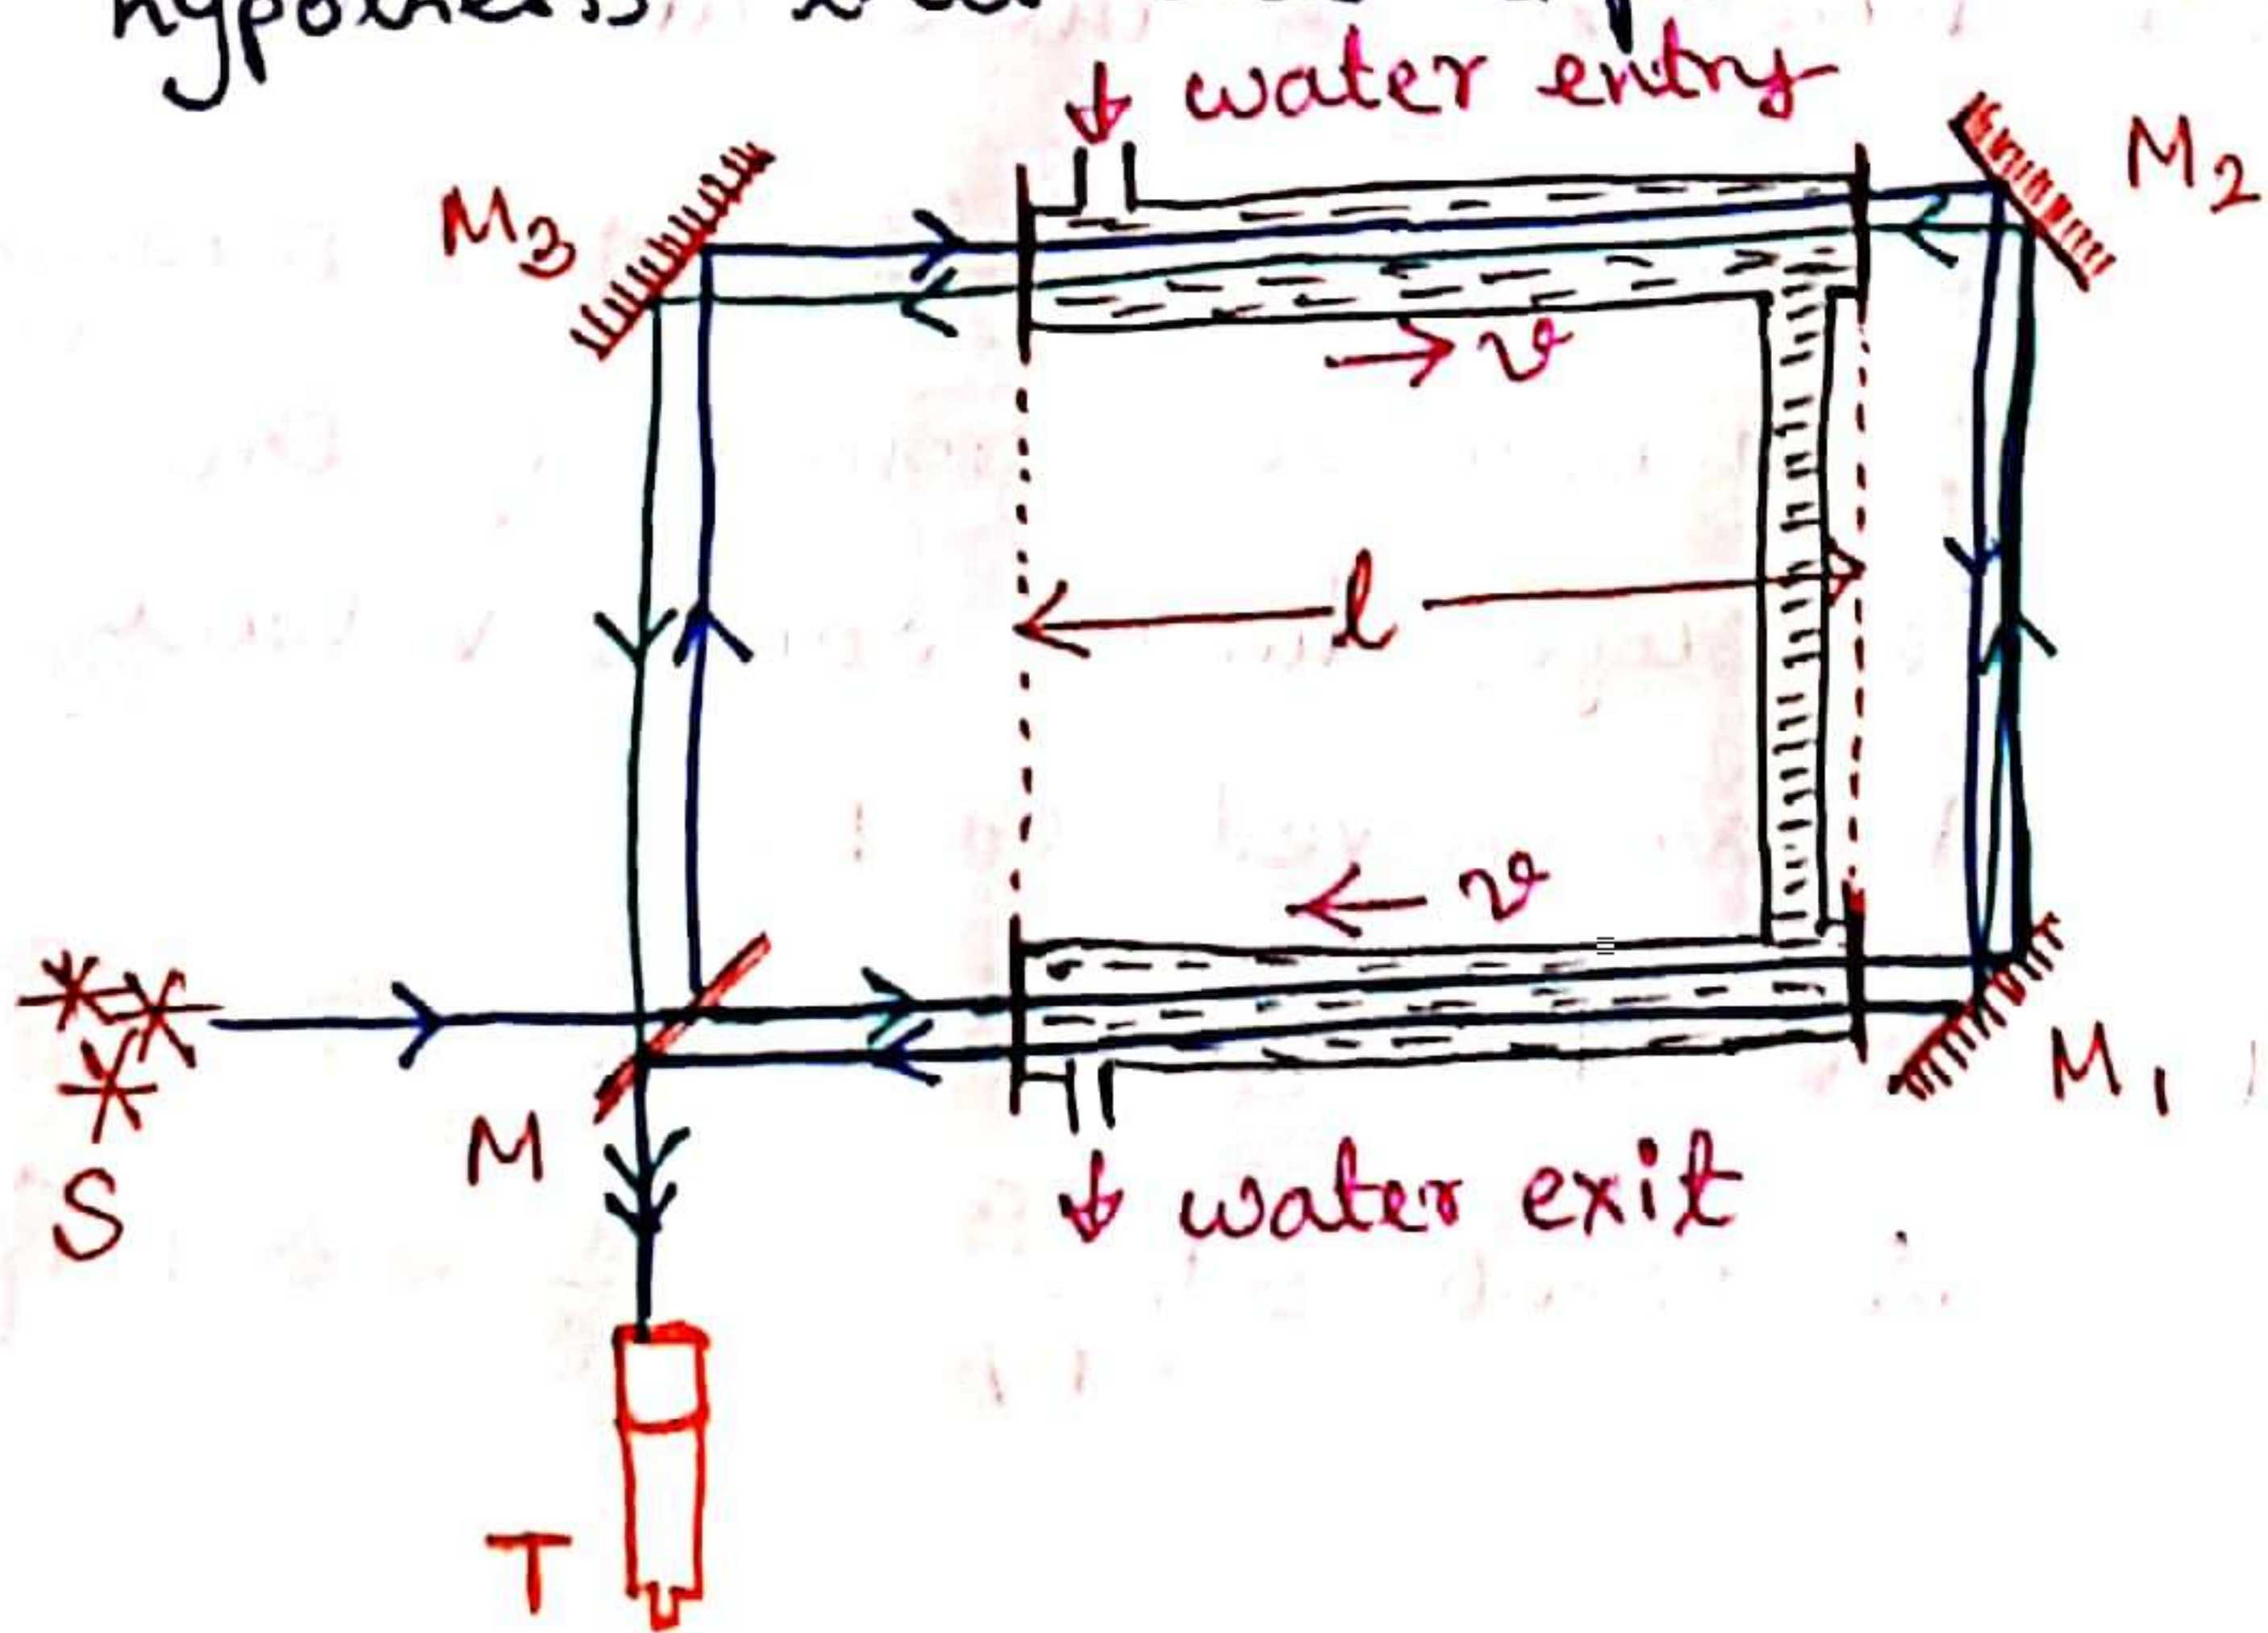 hypothesis
↓ water entry
M2
M3
→ v
l
← v
M
M1
S
↓ water exit
T